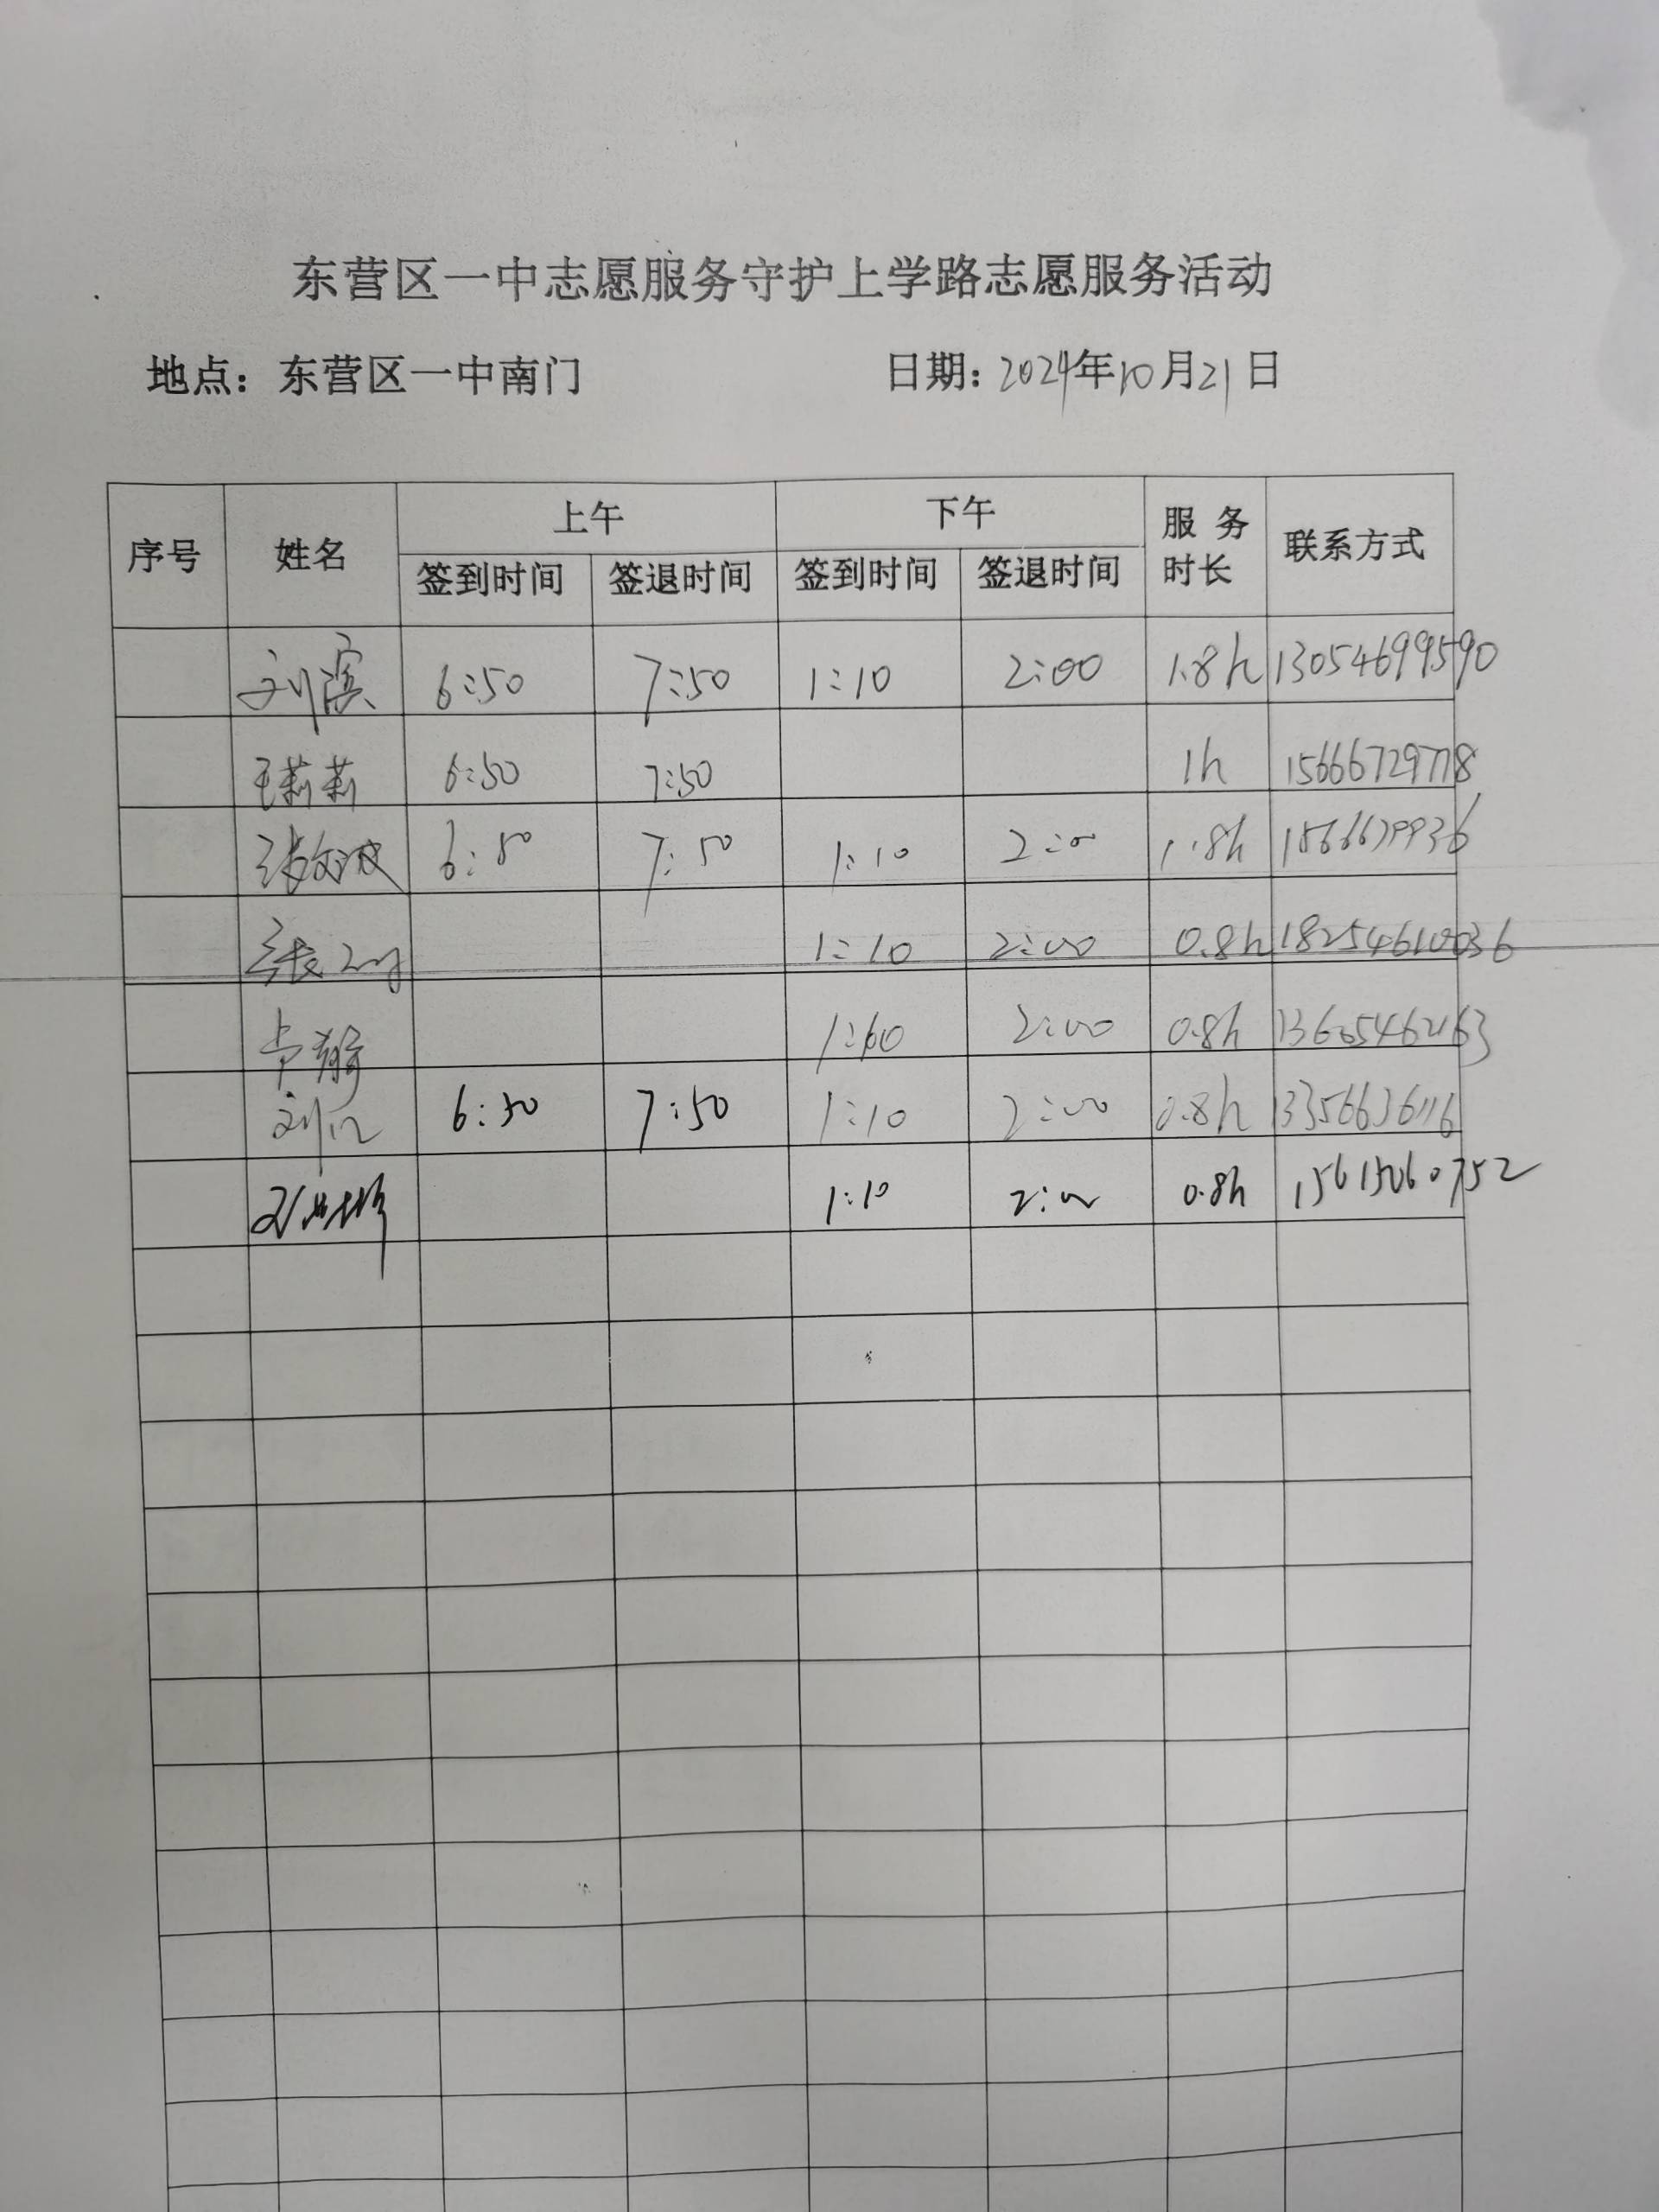 东营区一中志愿服务守护上学路志愿服务活动
地点：东营区一中南门 日期：2024年10月21日
序号 姓名 上午 下午 服务时长 联系方式
签到时间 签退时间 签到时间 签退时间
刘滨 6:50 7:50 1:10 2:00 1.8h 13054699590
王莉莉 6:50 7:50 1h 15666729778
6:50 7:50 1:10 2:00 1.8h
张 1:10 2:00 0.8h 18254610036
2:00 0.8h 13605462163
刘 6:50 7:50 1:10 2:00 0.8h 13356636116
1:10 2:00 0.8h 15615060752